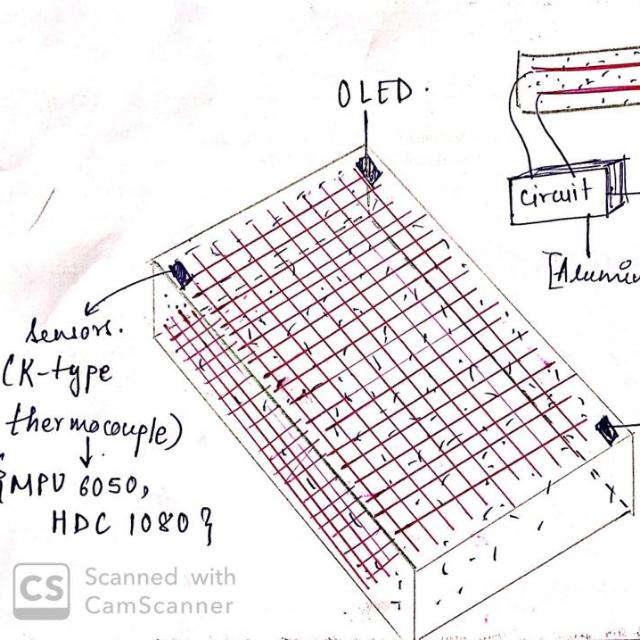 OLED.
circuit
[Alumin
sensors.
(K-type
thermocouple)
{MPU 6050,
HDC 1080}
CS Scanned with
CamScanner